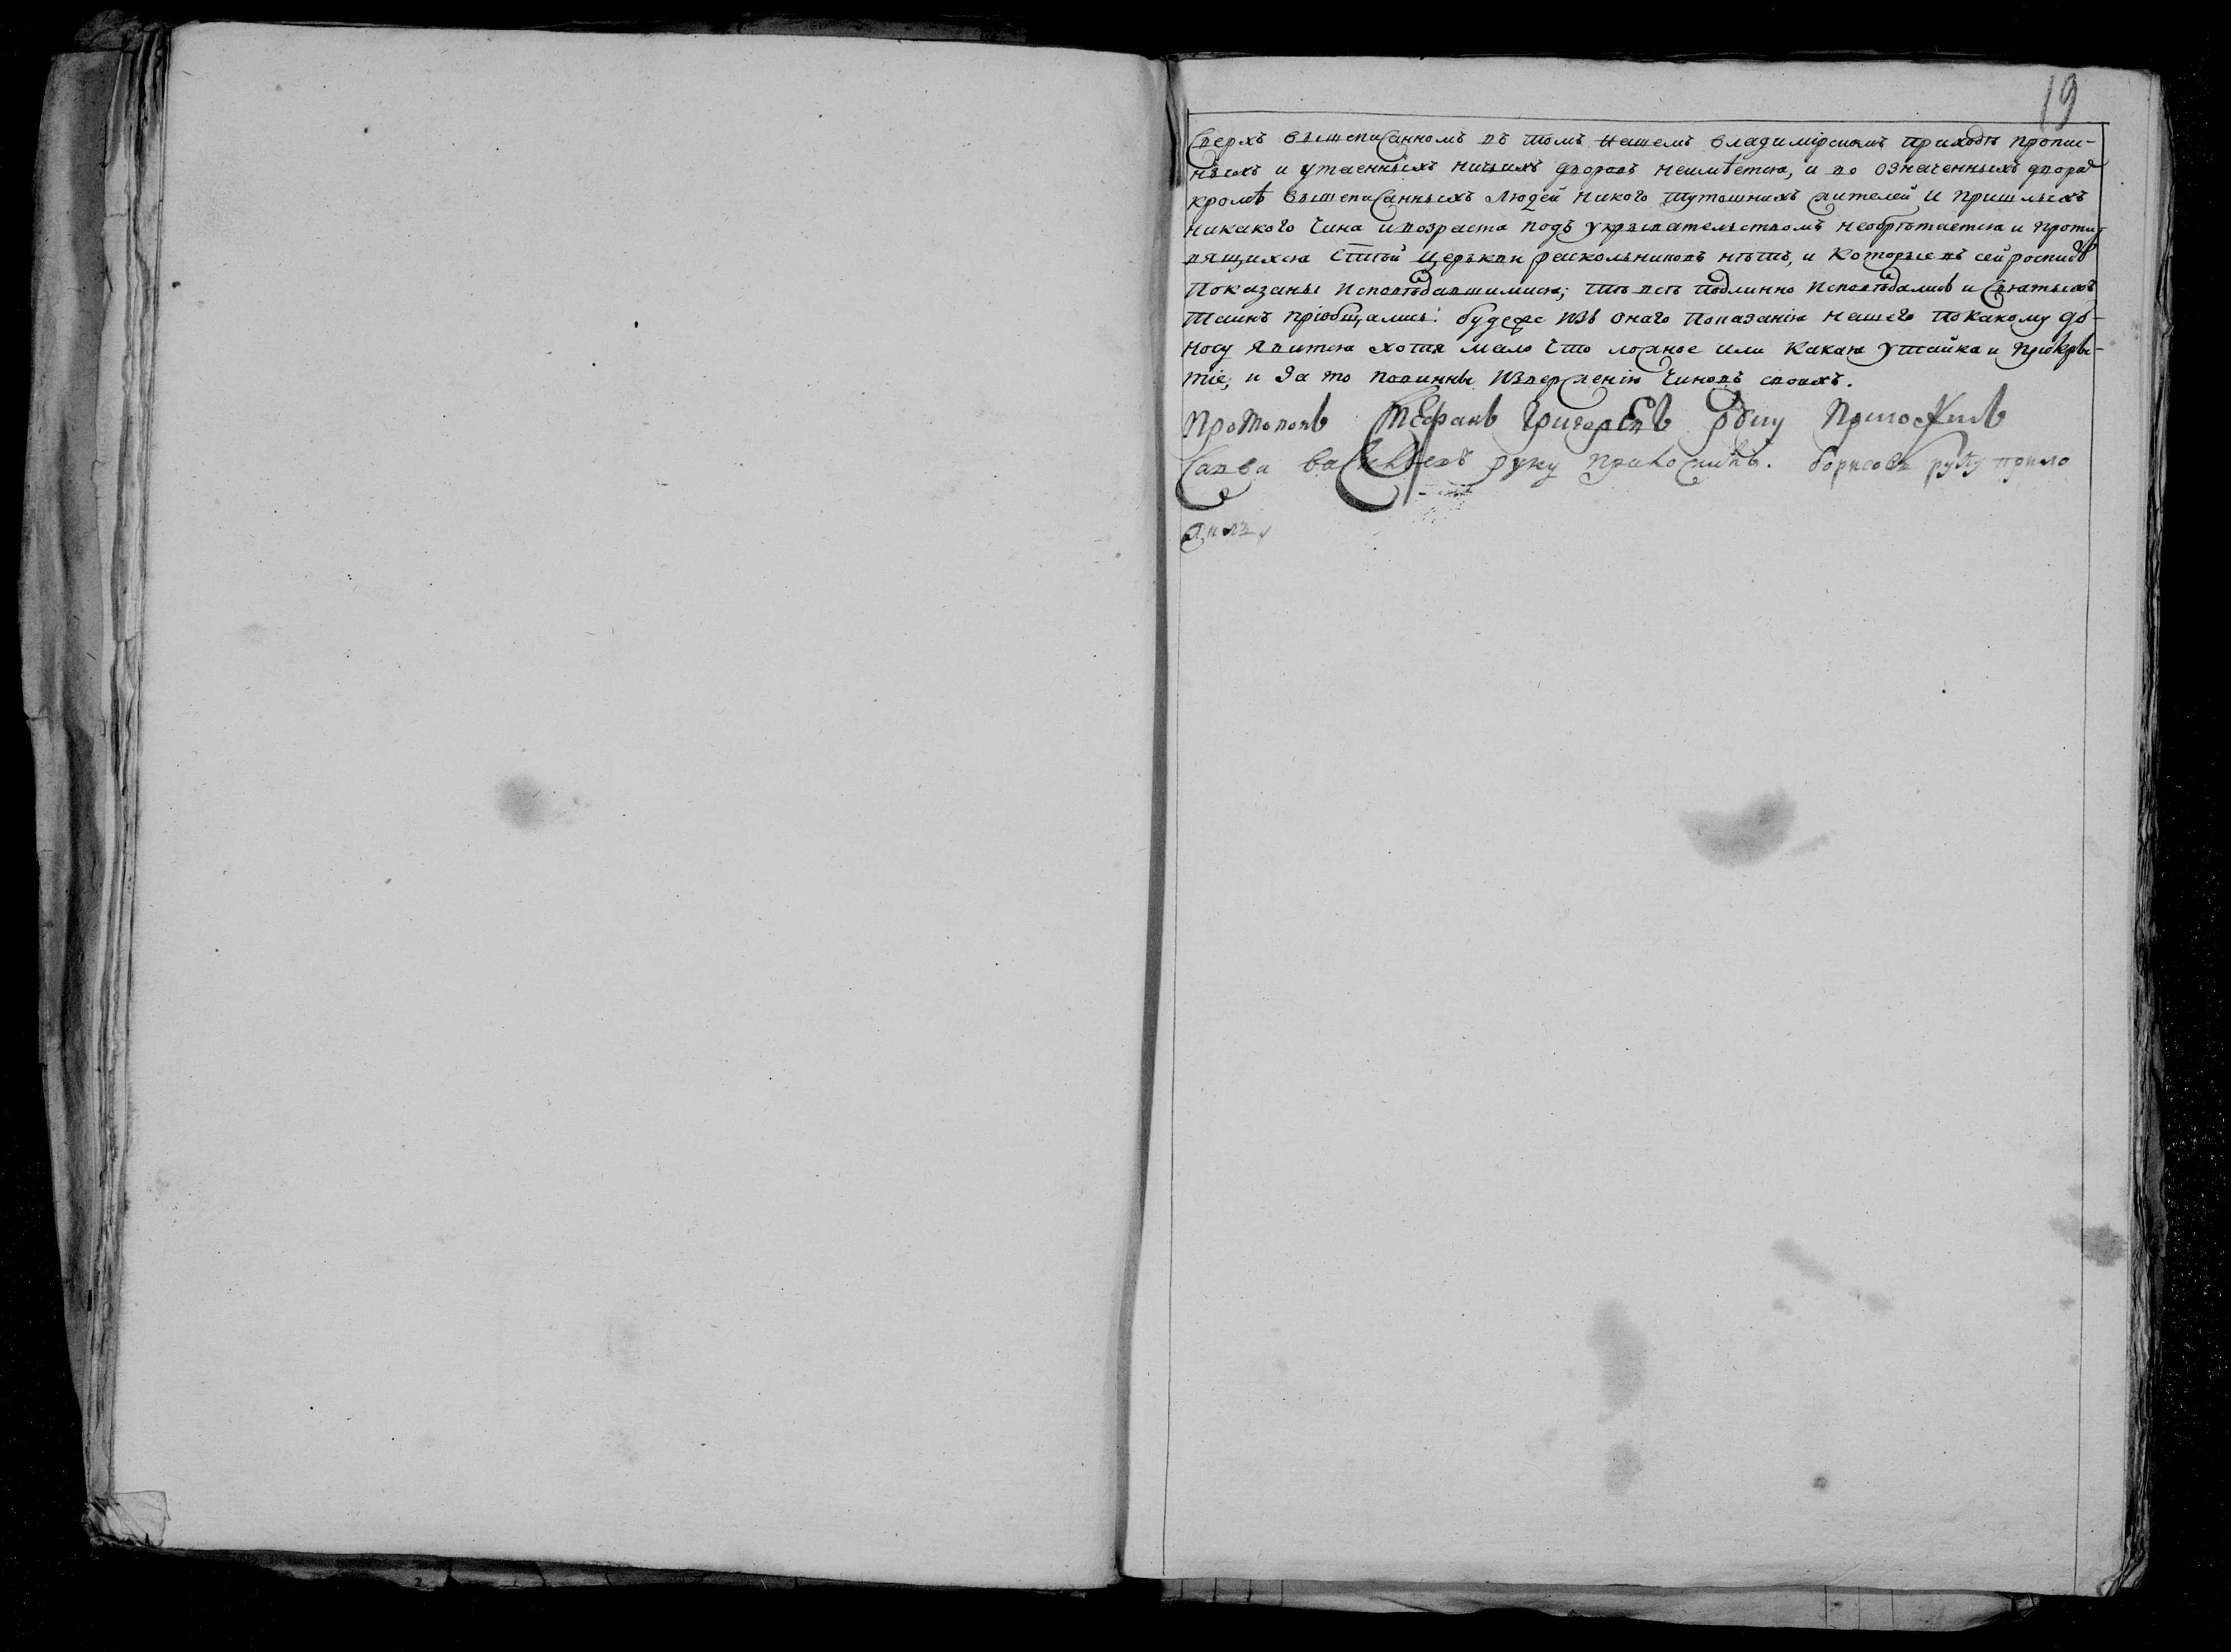 19
Сверхъ вышеписанномъ въ томъ нашемъ владимірскомъ приходѣ пропис-
ныхъ и утаенныхъ ничьихъ дворовъ неимѣется, и во означенныхъ двора
кромѣ вышеписанныхъ людей никого тутошнихъ жителей и пришлыхъ
никакого чина и возраста подъ укрывательствомъ необрѣтается и проти
вящихся стой церькви раскольниковъ нѣтъ, и которые въ сей росписѣ
показаны исповѣдавшимися; тѣ всѣ подлинно исповѣдались и святыхъ
таинъ пріобщались. будеже изъ онаго показанія нашего покакому до-
носу явится хотя мало что ложное или какая утайка и прикры-
тіе, и за то повинны изверженію чиновъ своихъ.
Протопопъ Стефанъ Григорьевъ руку приложилъ
Савва Васильевъ руку приложилъ. Борисовъ руку прило
жилъ